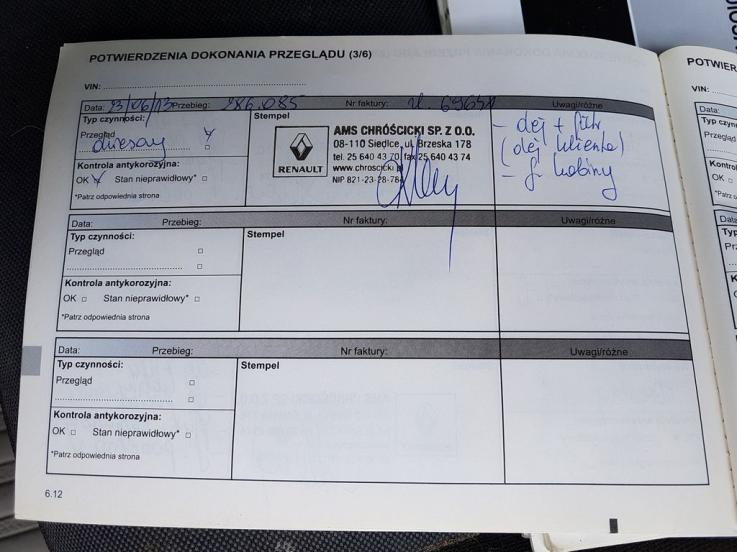 POTWIERDZENIA DOKONANIA PRZEGLĄDU (3/6)
VIN:
Data: 23/06/13 Przebieg: 286.085 Nr faktury: Uwagi/różne
Typ czynności:
Przegląd
okresowy
Kontrola antykorozyjna:
OK Stan nieprawidłowy*
*Patrz odpowiednia strona
Stempel
RENAULT
AMS CHRÓŚCICKI SP. Z O.O.
08-110 Siedlce, ul. Brzeska 178
tel. 25 640 43 70, fax 25 640 43 74
www.chroscicki.pl
NIP 821-23-28-784
- olej + filtr
(olej klienta)
- f. kabiny
Data: Przebieg: Nr faktury: Uwagi/różne
Typ czynności:
Przegląd
Kontrola antykorozyjna:
OK Stan nieprawidłowy*
*Patrz odpowiednia strona
Stempel
Data: Przebieg: Nr faktury: Uwagi/różne
Typ czynności:
Przegląd
Kontrola antykorozyjna:
OK Stan nieprawidłowy*
*Patrz odpowiednia strona
Stempel
6.12
VIN:
Data: